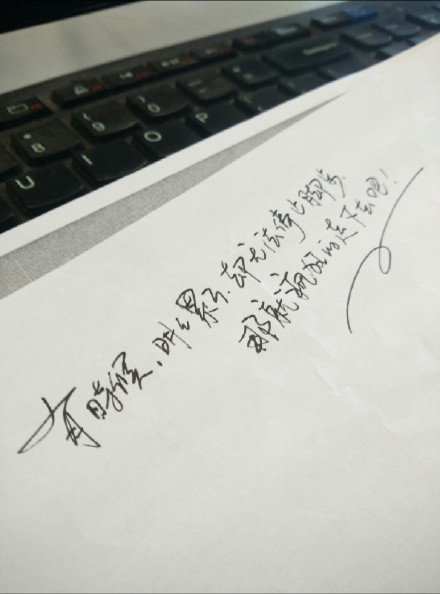 8 9 0
U I O P
有时候，明明累了，却无法停止脚步.
那就疯狂的走下去吧！